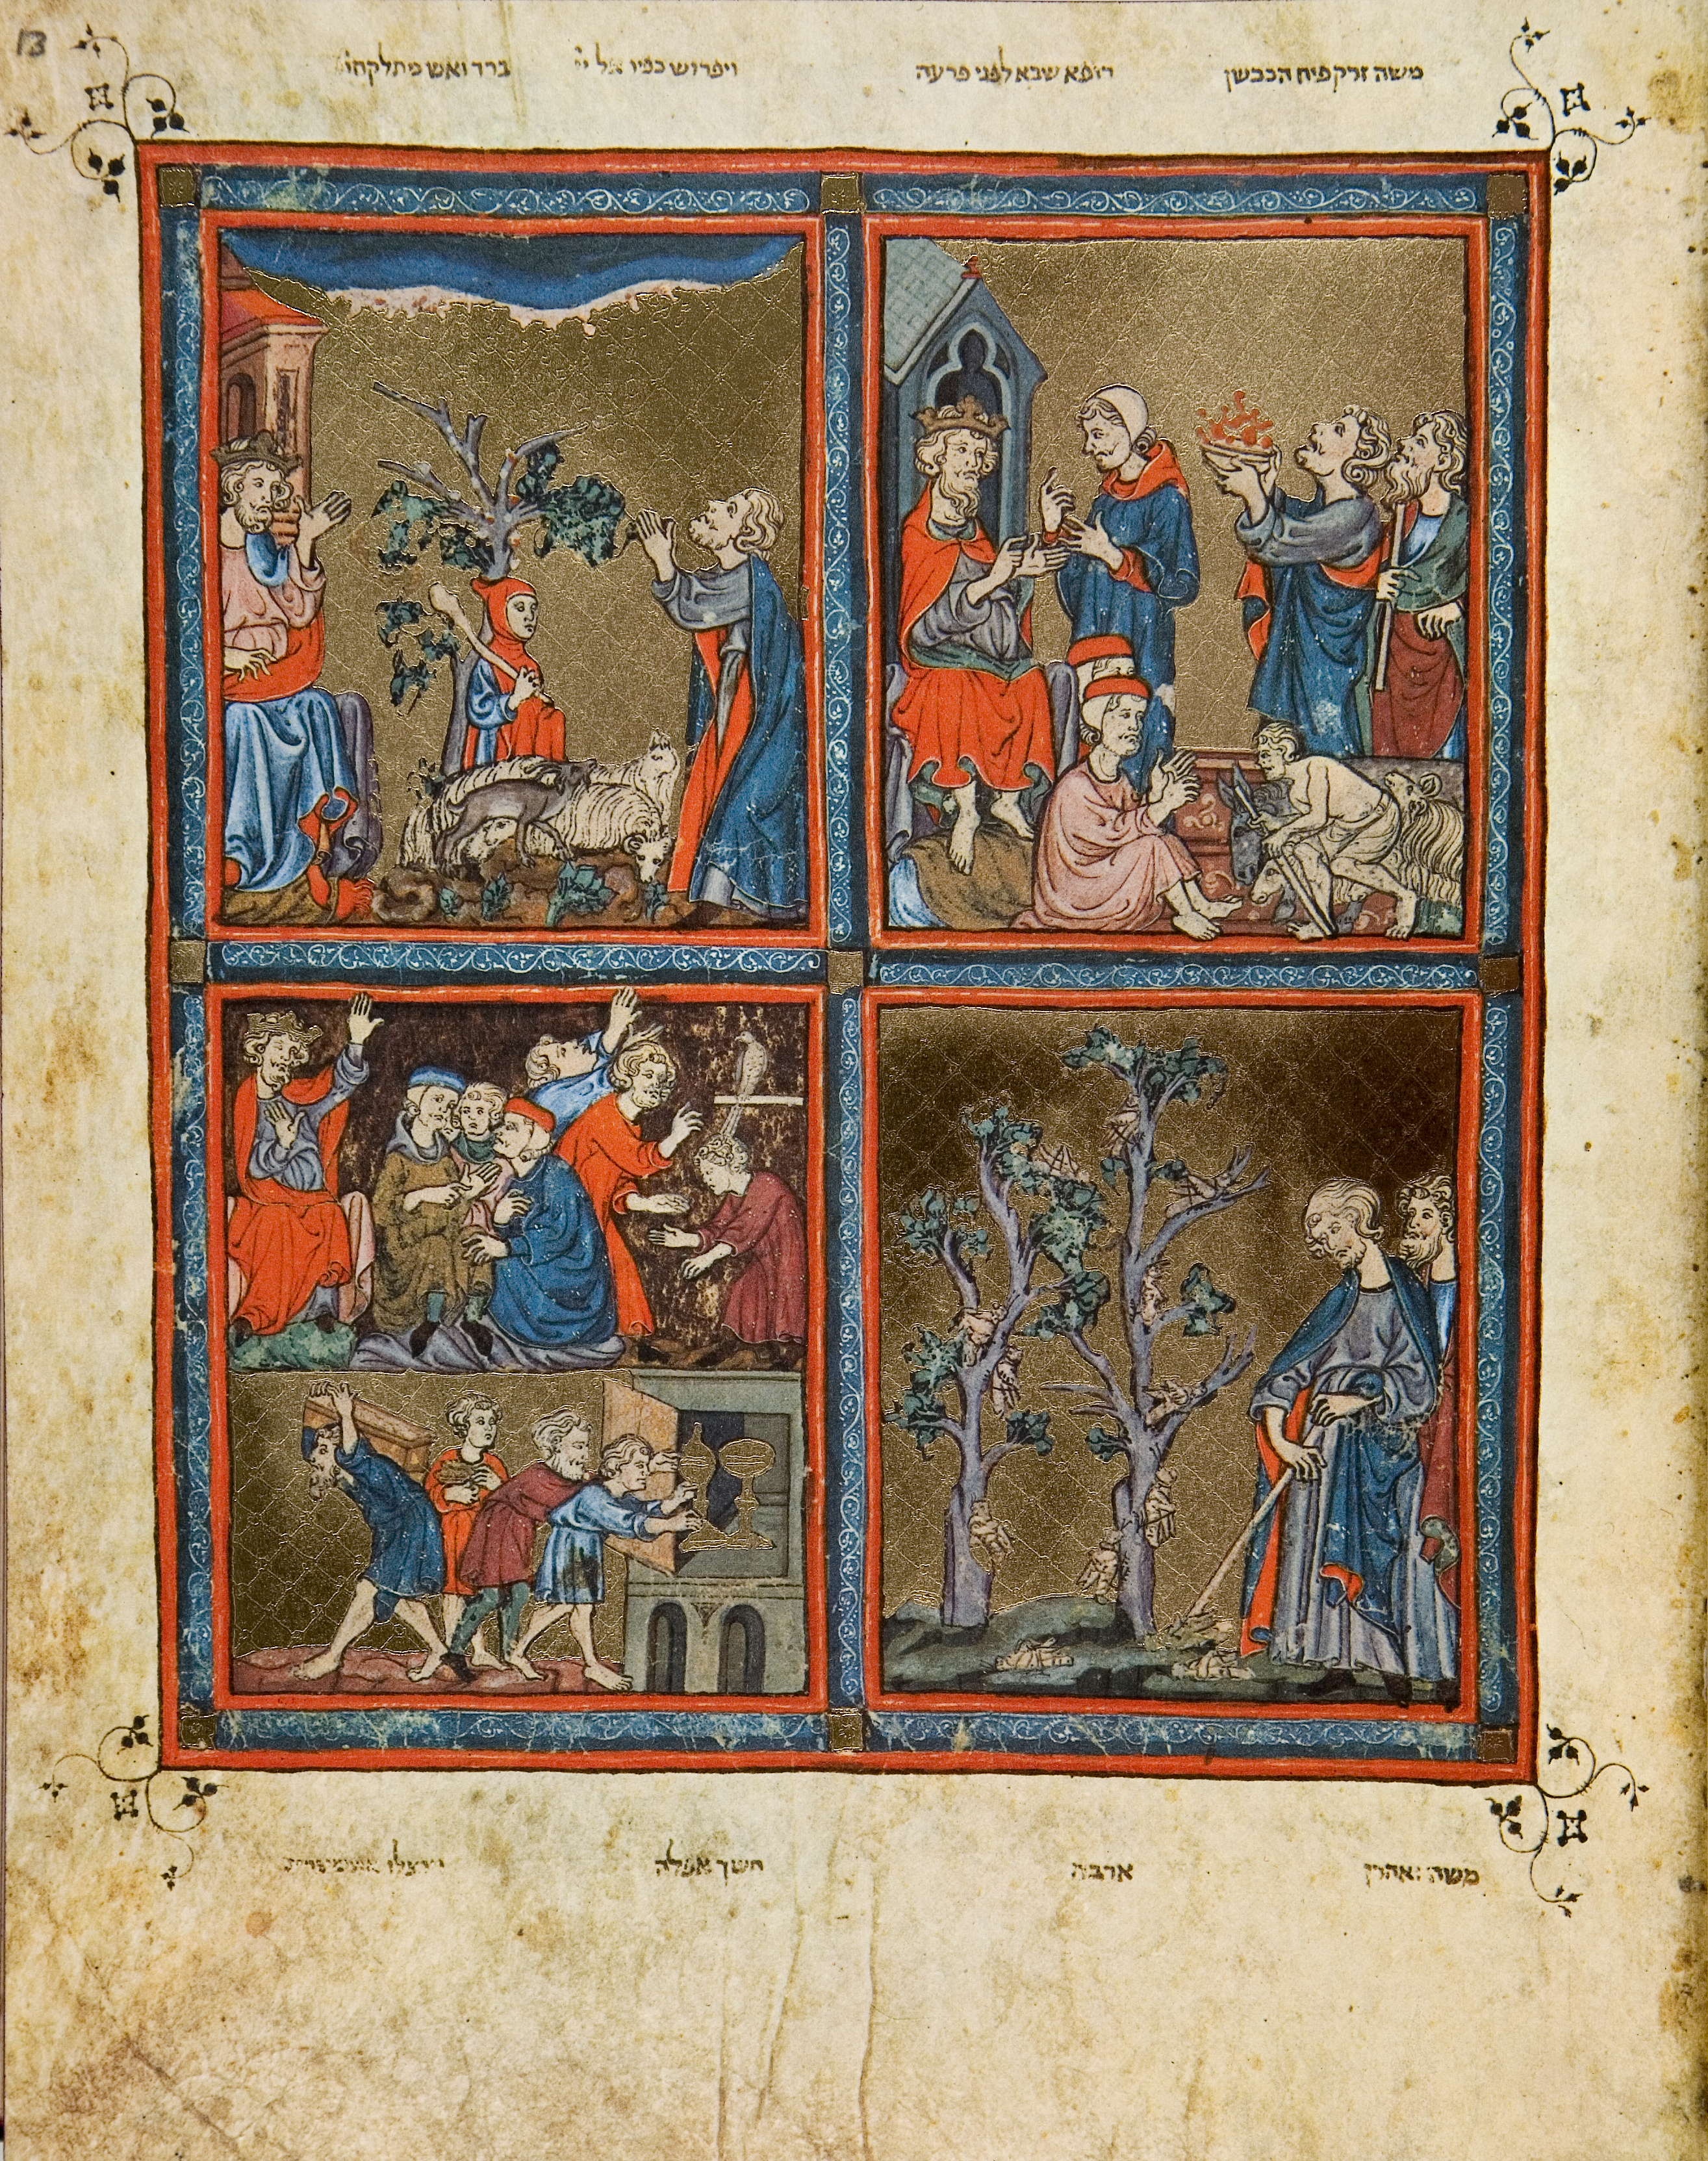 משה זרק פיח הכבשן
רופא שבא לפני פרעה
ויפרוש כפיו אל יי
ברד ואש מתלקחת
משה ואהרן
ארבה
חשך אפלה
וינצלו את מצרים
13